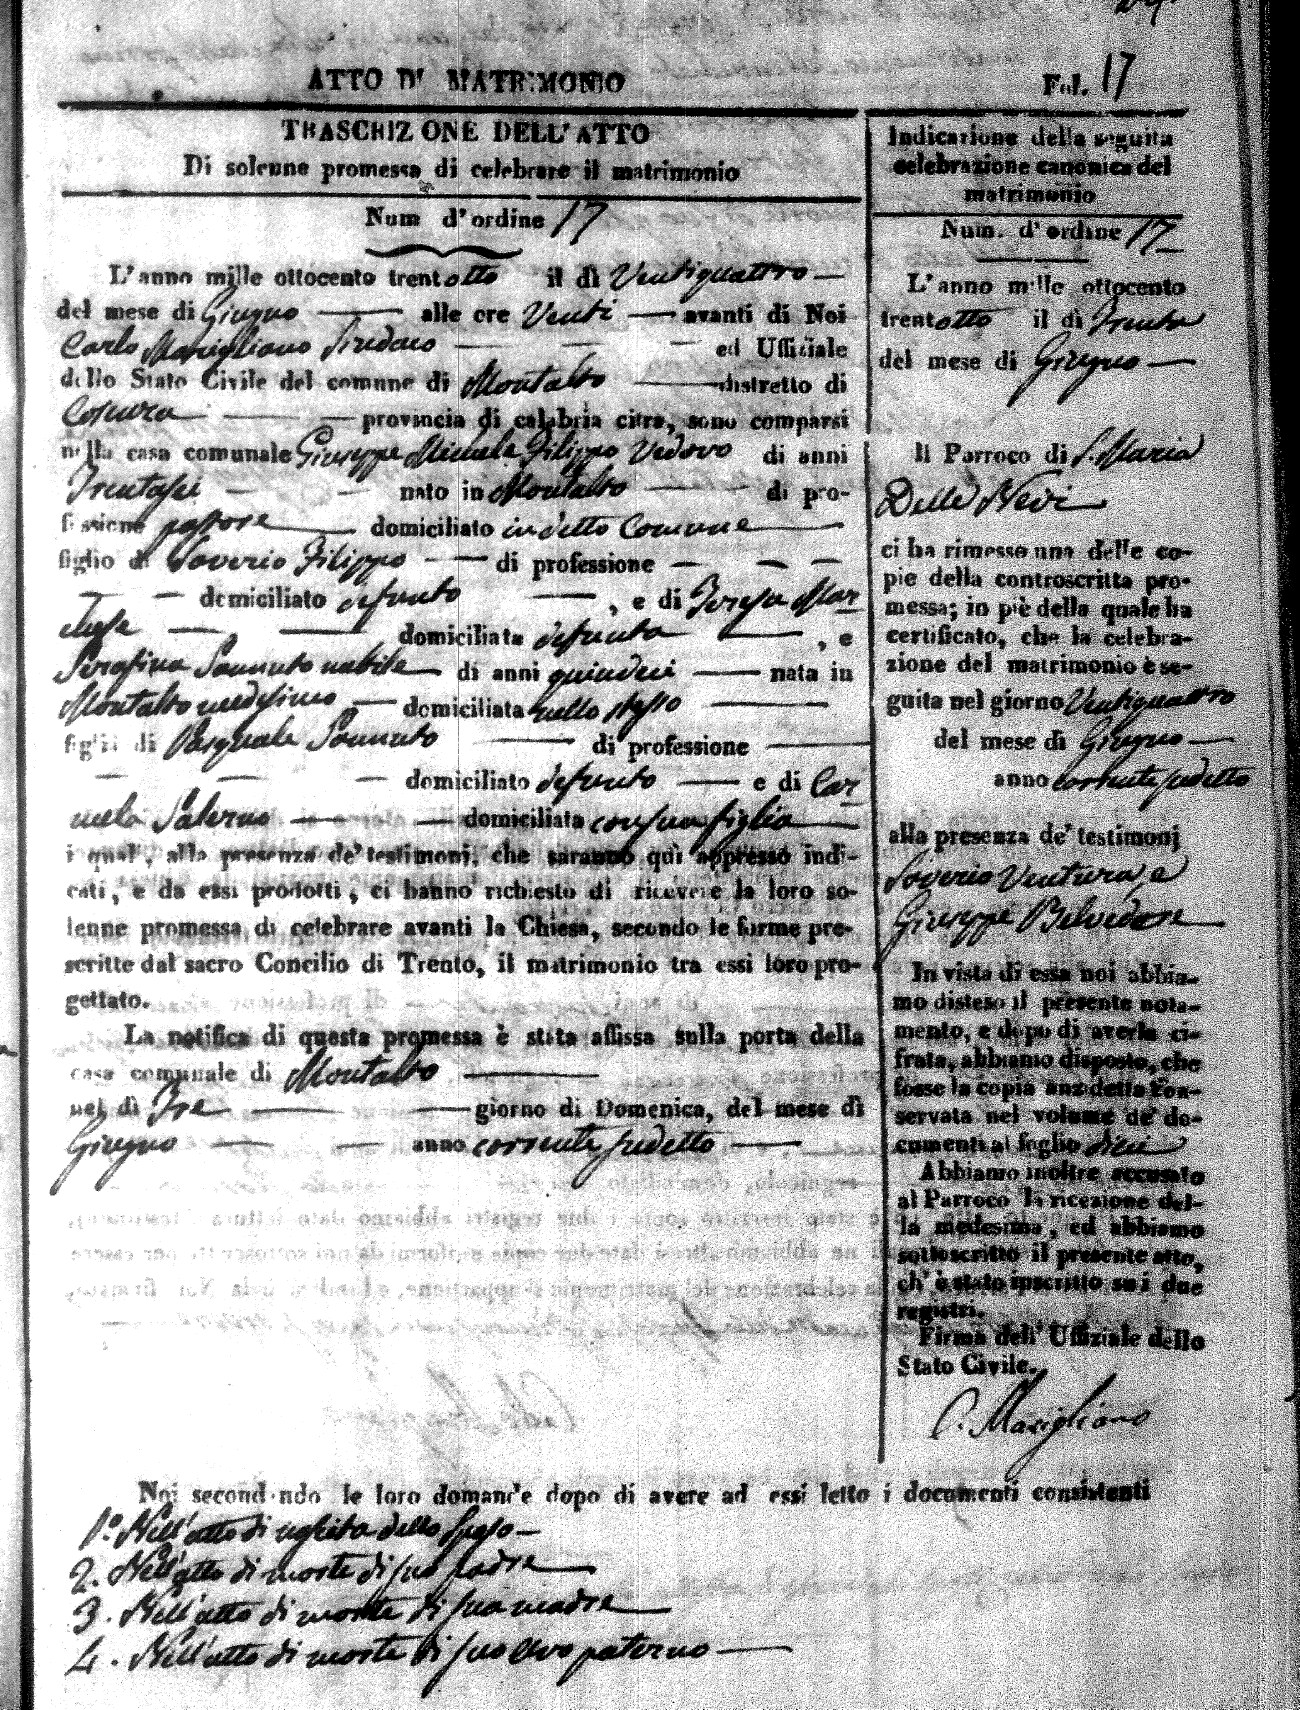 ATTO DI MATRIMONIO
Fol. 17
TRASCRIZIONE DELL'ATTO
Di solenne promessa di celebrare il matrimonio
Num d'ordine 17
L'anno mille ottocento trentotto il dì Ventiquattro
del mese di Giugno alle ore Venti avanti di Noi
Carlo Marigliano Sindaco ed Ufficiale
dello Stato Civile del comune di Montalto distretto di
Cosenza provincia di calabria citra, sono comparsi
nella casa comunale Giuseppe Michele Filippo Vedovo di anni
Trentasei nato in Montalto di pro-
fessione pastore domiciliato in detto Comune
figlio di Saverio Filippo di professione
domiciliato defunto , e di Teresa Mar
chese domiciliata defunta , e
Serafina Sannuto nubile di anni quindici nata in
Montalto medesimo domiciliata nello stesso
figlia di Pasquale Sannuto di professione
domiciliato defunto e di Car
mela Salerno domiciliata con sua figlia
i quali, alla presenza de' testimonj, che saranno quì appresso indi-
cati, e da essi prodotti, ci hanno richiesto di ricevere la loro so-
lenne promessa di celebrare avanti la Chiesa, secondo le forme pre-
scritte dal sacro Concilio di Trento, il matrimonio tra essi loro pro-
gettato.
La notifica di questa promessa è stata affissa sulla porta della
casa comunale di Montalto
nel dì Tre giorno di Domenica, del mese di
Giugno anno corrente sudetto
Indicazione della seguita
celebrazione canonica del
matrimonio
Num. d'ordine 17
L'anno mille ottocento
trentotto il dì Trenta
del mese di Giugno
Il Parroco di S. Maria
Delle Nevi
ci ha rimesso una delle co-
pie della controscritta pro-
messa; in piè della quale ha
certificato, che la celebra-
zione del matrimonio è se-
guita nel giorno Ventiquattro
del mese di Giugno
anno corrente sudetto
alla presenza de' testimonj
Saverio Ventura, e
Giuseppe Belvedere
In vista di essa noi abbia-
mo disteso il presente nota-
mento, e dopo di averla ci-
frata, abbiamo disposto, che
fosse la copia anzidetta con-
servata nel volume de' do-
cumenti al foglio dieci
Abbiamo inoltre accusato
al Parroco la ricezione del-
la medesima, ed abbiamo
sottoscritto il presente atto,
ch' è stato inscritto su i due
registri.
Firma dell' Uffiziale dello
Stato Civile.
C. Marigliano
Noi secondando le loro domande dopo di avere ad essi letto i documenti consistenti
1.º Nell'atto di nascita dello sposo
2. Nell'atto di morte di suo padre
3. Nell'atto di morte di sua madre
4. Nell'atto di morte di suo avo paterno